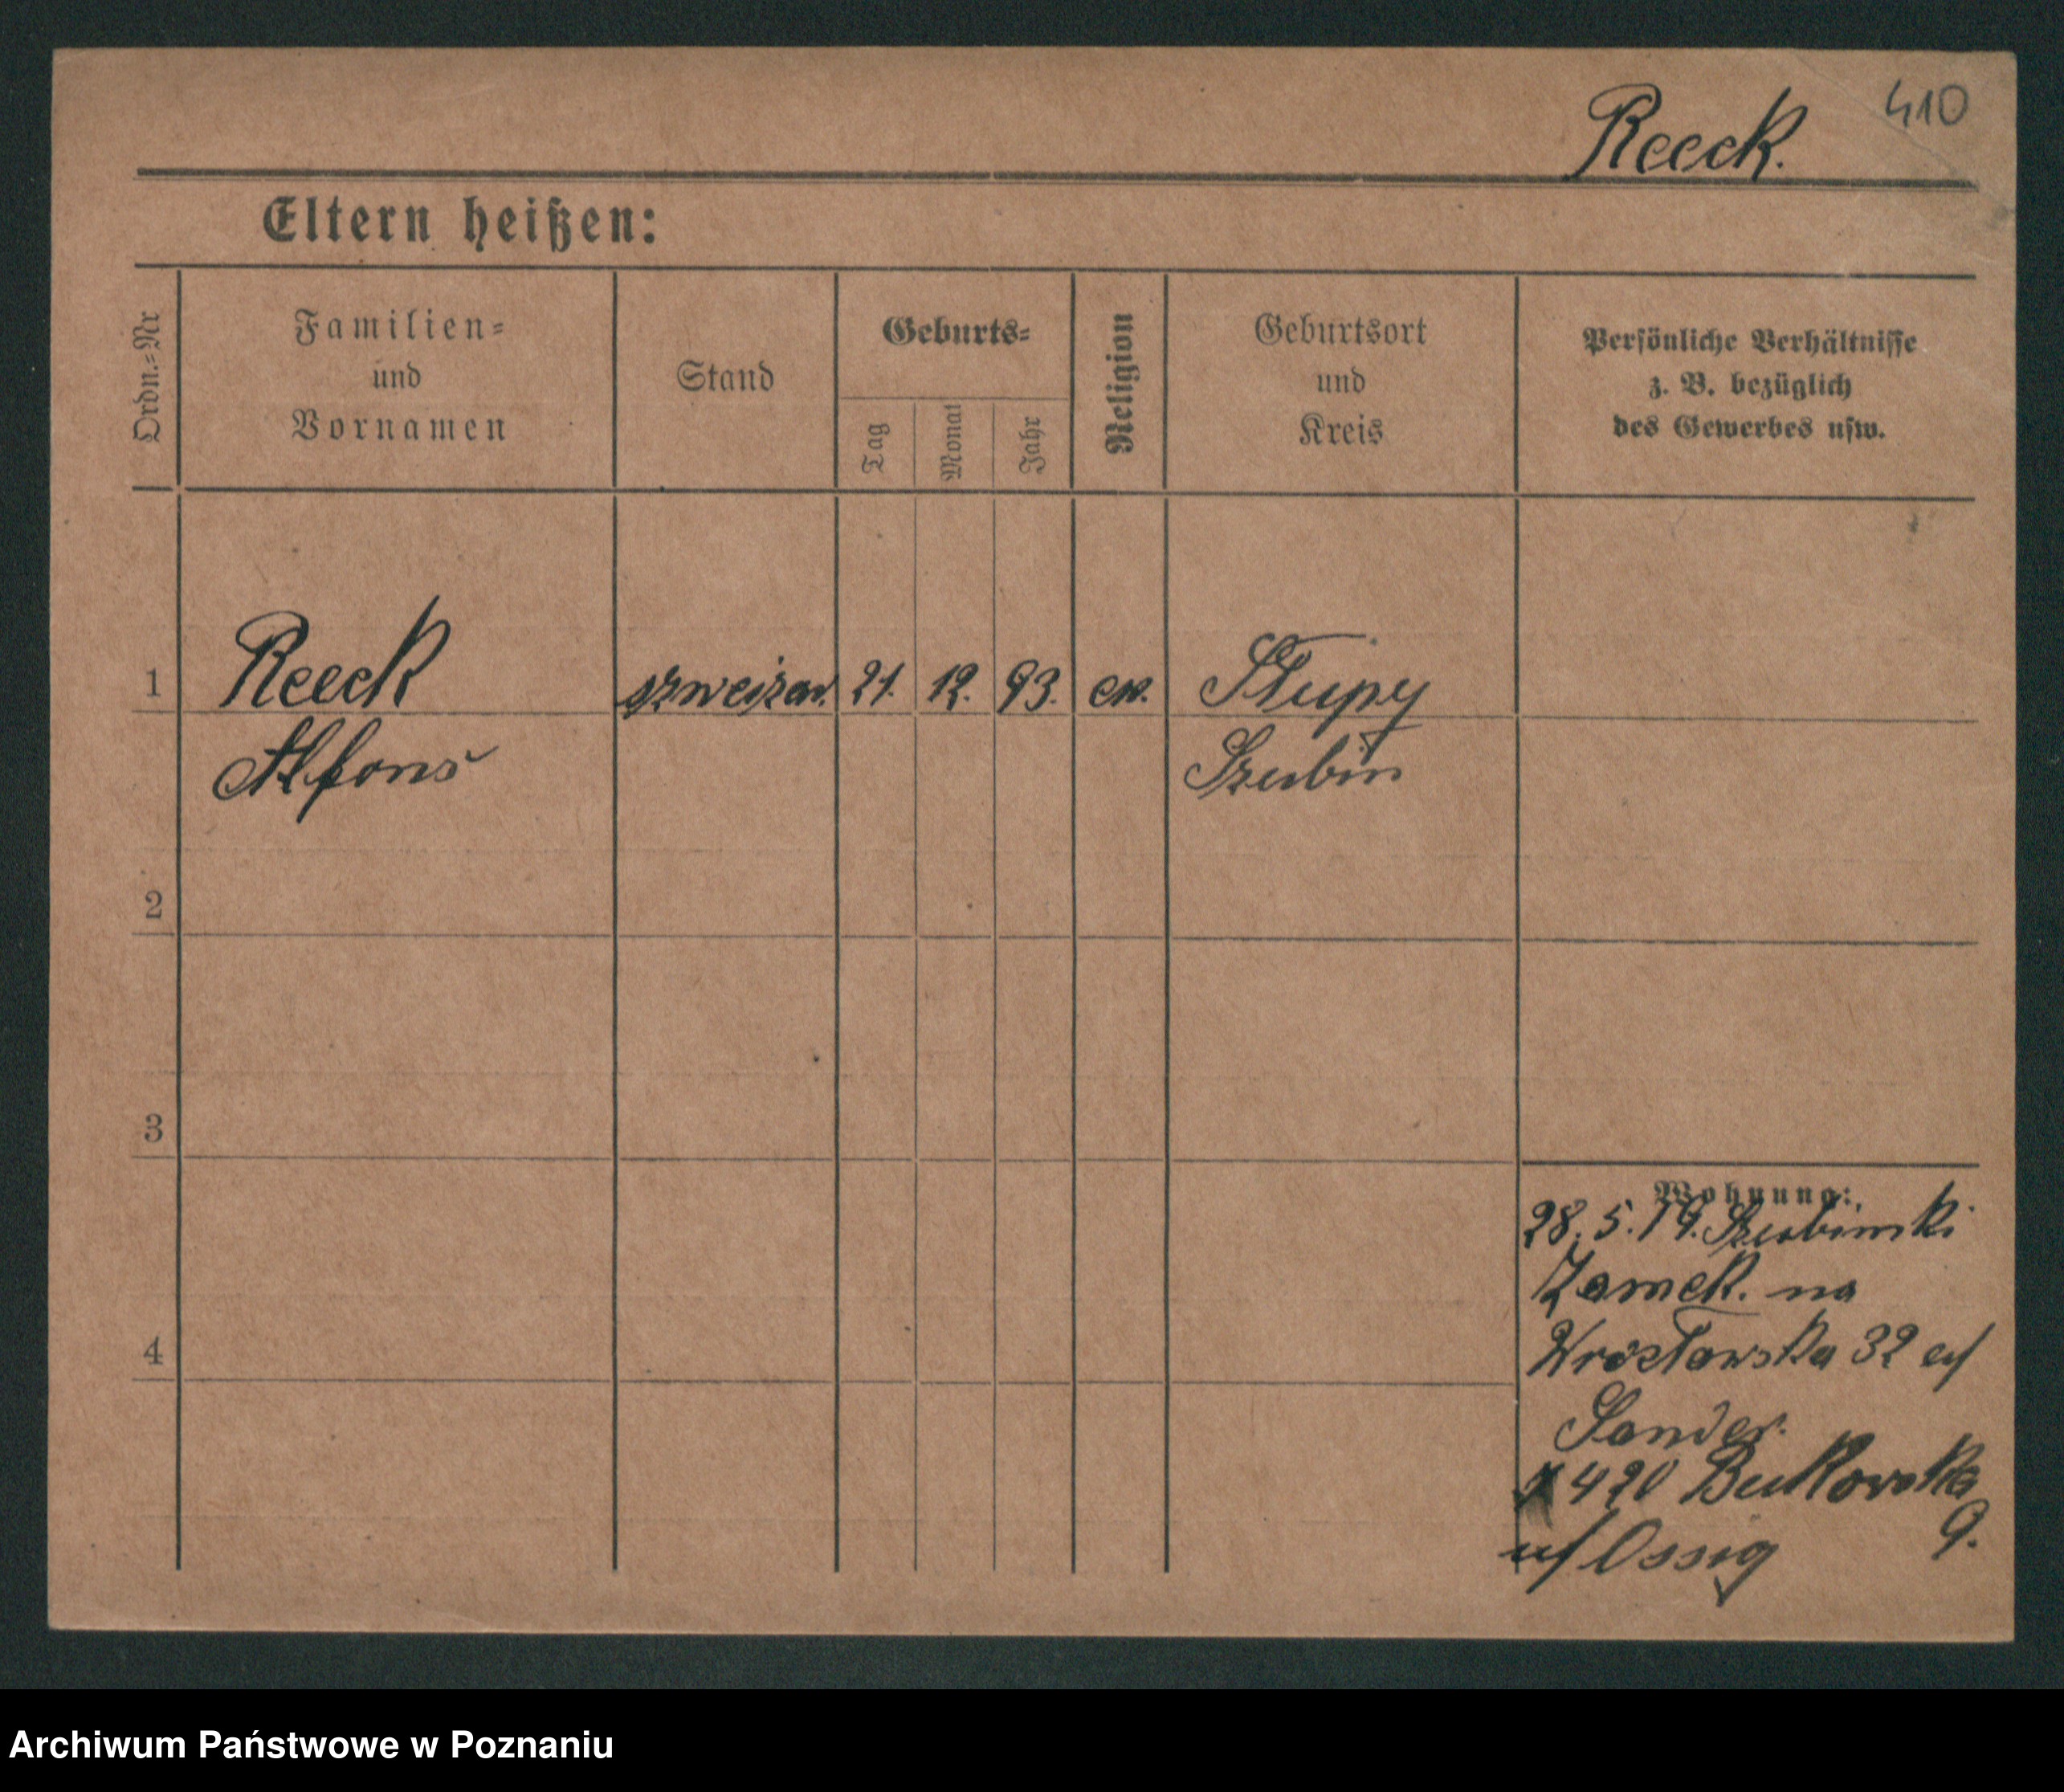 410
Reeck.
Eltern heißen:
Ordn.-Nr
Familien-
und
Vornamen
Stand
Geburts-
Tag
Monat
Jahr
Religion
Geburtsort
und
Kreis
Persönliche Verhältnisse
z. B. bezüglich
des Gewerbes usw.
1
Reeck
szweizar.
21.
12.
93.
ew.
Słupy
Alfons
Szubin
2
3
4
Wohnung:
28.5.19. Szubinski
Zamek. na
Wrocławska 32 u/
Sander.
420 Bukowska
9.
u/ Ossig
Archiwum Państwowe w Poznaniu